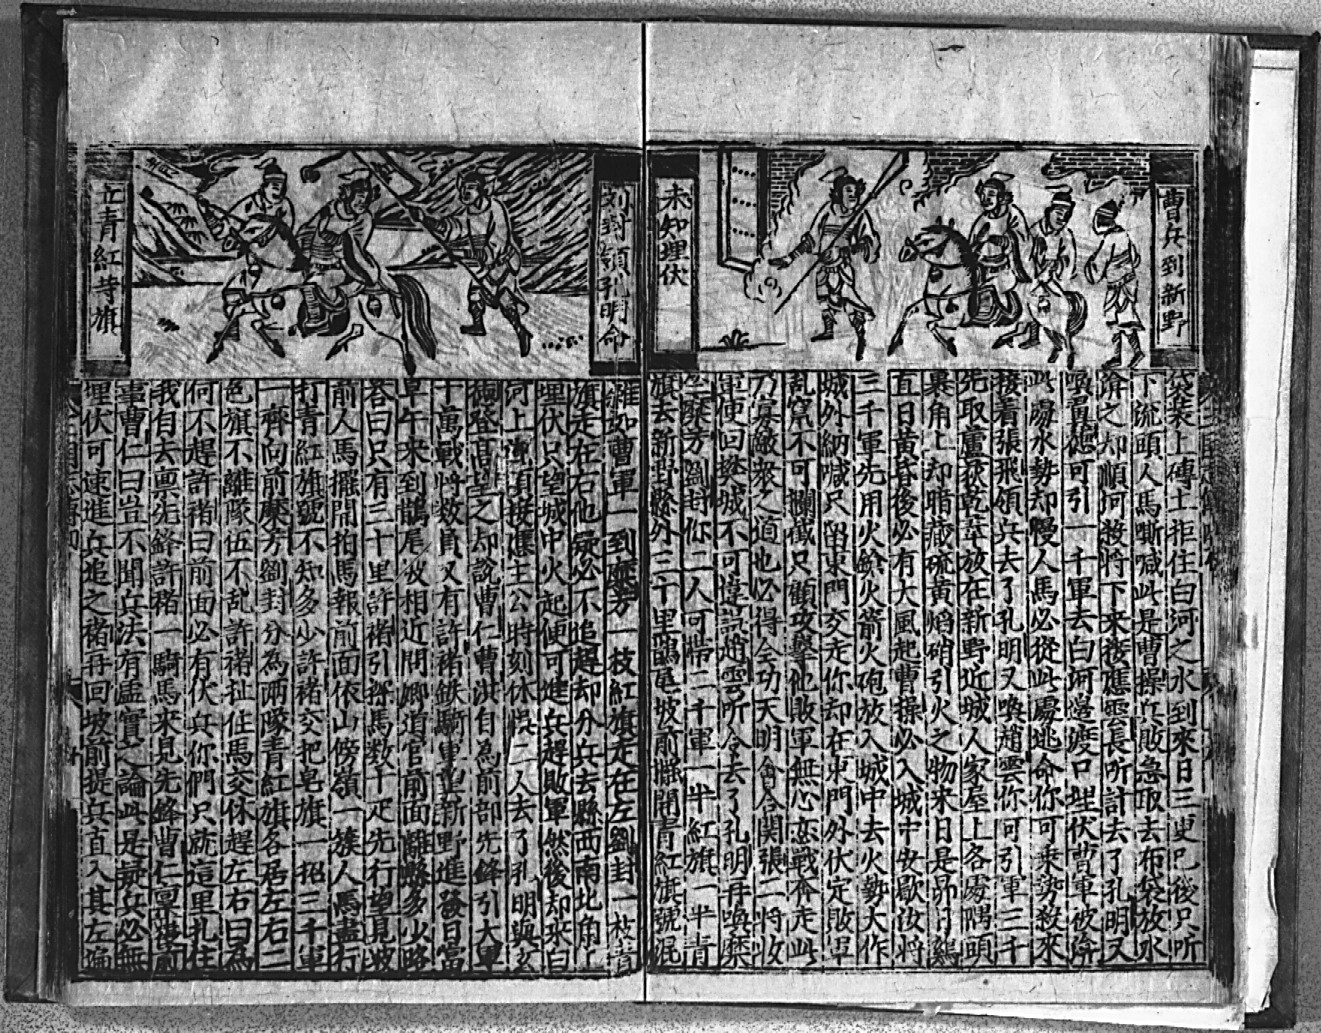 曹兵到新野
未知埋伏
袋裝上磚土拒住白河之水到來日三更已後只听
下流頭人馬嘶喊此是曹操兵敗急取去布袋放水
渰之却順河殺將下來接應雲長所計去了孔明又
喚翼德可引一千軍去白河邊渡口埋伏曹軍被渰
此處水勢却慢人馬必從此處逃命你可乘勢殺來
接着張飛領兵去了孔明又喚趙雲你可引軍三千
先取蘆荻乾葦放在新野近城人家屋上各處隅頭
裏角上却暗藏硫黃焰硝引火之物來日是昴日雞
直日黃昏後必有大風起曹操必入城中安歇汝將
三千軍先用火鎗火箭火砲放入城中去火勢大作
城外納喊只留東門交走你却在東門外伏定敗軍
乱竄不可攔截只顧攻擊他敗軍無心恋戰奔走此
乃寡敵衆之道也必得全功天明會合関張二將收
軍便回樊城不可遲悞趙雲所令去了孔明再喚糜
芳劉封你二人可帶二千軍一半紅旗一半青
旗去新野縣外三十里鵲尾坡前擺開青紅旗號混
刘封領孔明命
立青紅号旗
雜如曹軍一到糜芳一枝紅旗走在左劉封一枝青
旗走在右他疑必不追趕却分兵去縣西南北角上
埋伏只望城中火起便可進兵趕敗軍然後却來白
河上流頭接應主公時刻休悞二人去了孔明與玄
德登高望之却說曹仁曹洪自為前部先鋒引大軍
十萬戰將数員又有許褚鉄騎軍望新野進發日當
早午來到鵲尾坡相近問鄉道官前面離縣多少路
荅曰只有三十里許褚引探馬数十疋先行望見坡
前人馬擺開拍馬報前面依山傍嶺一簇人馬盡行
打青紅旗號不知多少許褚交把皂旗一招三千軍
一齊向前糜芳劉封分為兩隊青紅旗各居左右二
色旗不離隊伍不乱許褚扯住馬交休趕左右曰為
何不趕許褚曰前面必有伏兵你們只就這里扎住
我自去禀先鋒許褚一騎馬來見先鋒曹仁禀曹前
事曹仁曰豈不聞兵法有虛實之論此是疑兵必無
埋伏可速進兵追之褚再回坡前提兵直入其左徧